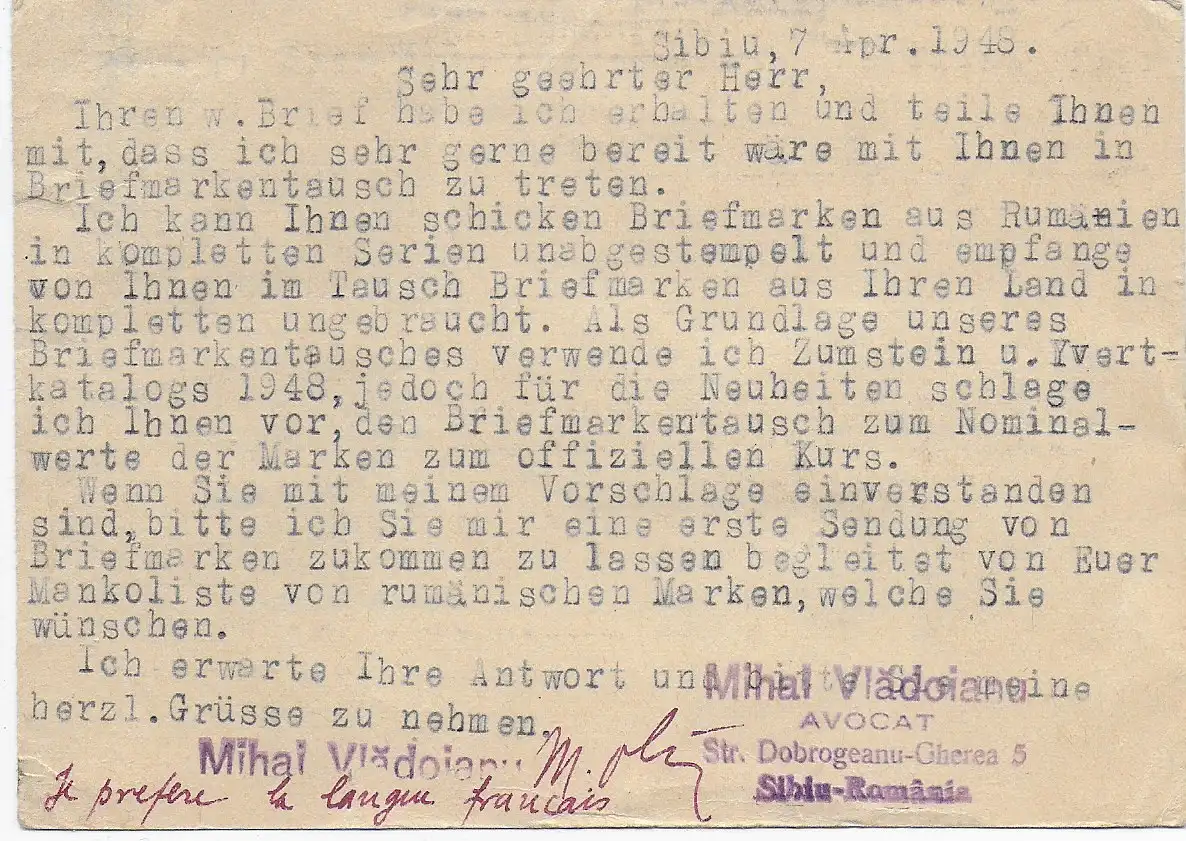 Sibiu, 7 Apr. 1948.
Sehr geehrter Herr,
Ihren w. Brief habe ich erhalten und teile Ihnen
mit, dass ich sehr gerne bereit wäre mit Ihnen in
Briefmarkentausch zu treten.
Ich kann Ihnen schicken Briefmarken aus Rumänien
in kompletten Serien unabgestempelt und empfange
von Ihnen im Tausch Briefmarken aus Ihren Land in
kompletten ungebraucht. Als Grundlage unseres
Briefmarkentausches verwende ich Zumstein u. Yvert-
katalogs 1948, jedoch für die Neuheiten schlage
ich Ihnen vor, den Briefmarkentausch zum Nominal-
werte der Marken zum offiziellen Kurs.
Wenn Sie mit meinem Vorschlage einverstanden
sind, bitte ich Sie mir eine erste Sendung von
Briefmarken zukommen zu lassen begleitet von Euer
Mankoliste von rumänischen Marken, welche Sie
wünschen.
Ich erwarte Ihre Antwort und bitte Sie meine
herzl. Grüsse zu nehmen.
Mihai Vlădoianu
AVOCAT
Str. Dobrogeanu-Gherea 5
Sibiu-România
Mihai Vlădoianu
Je prefere la langue francais